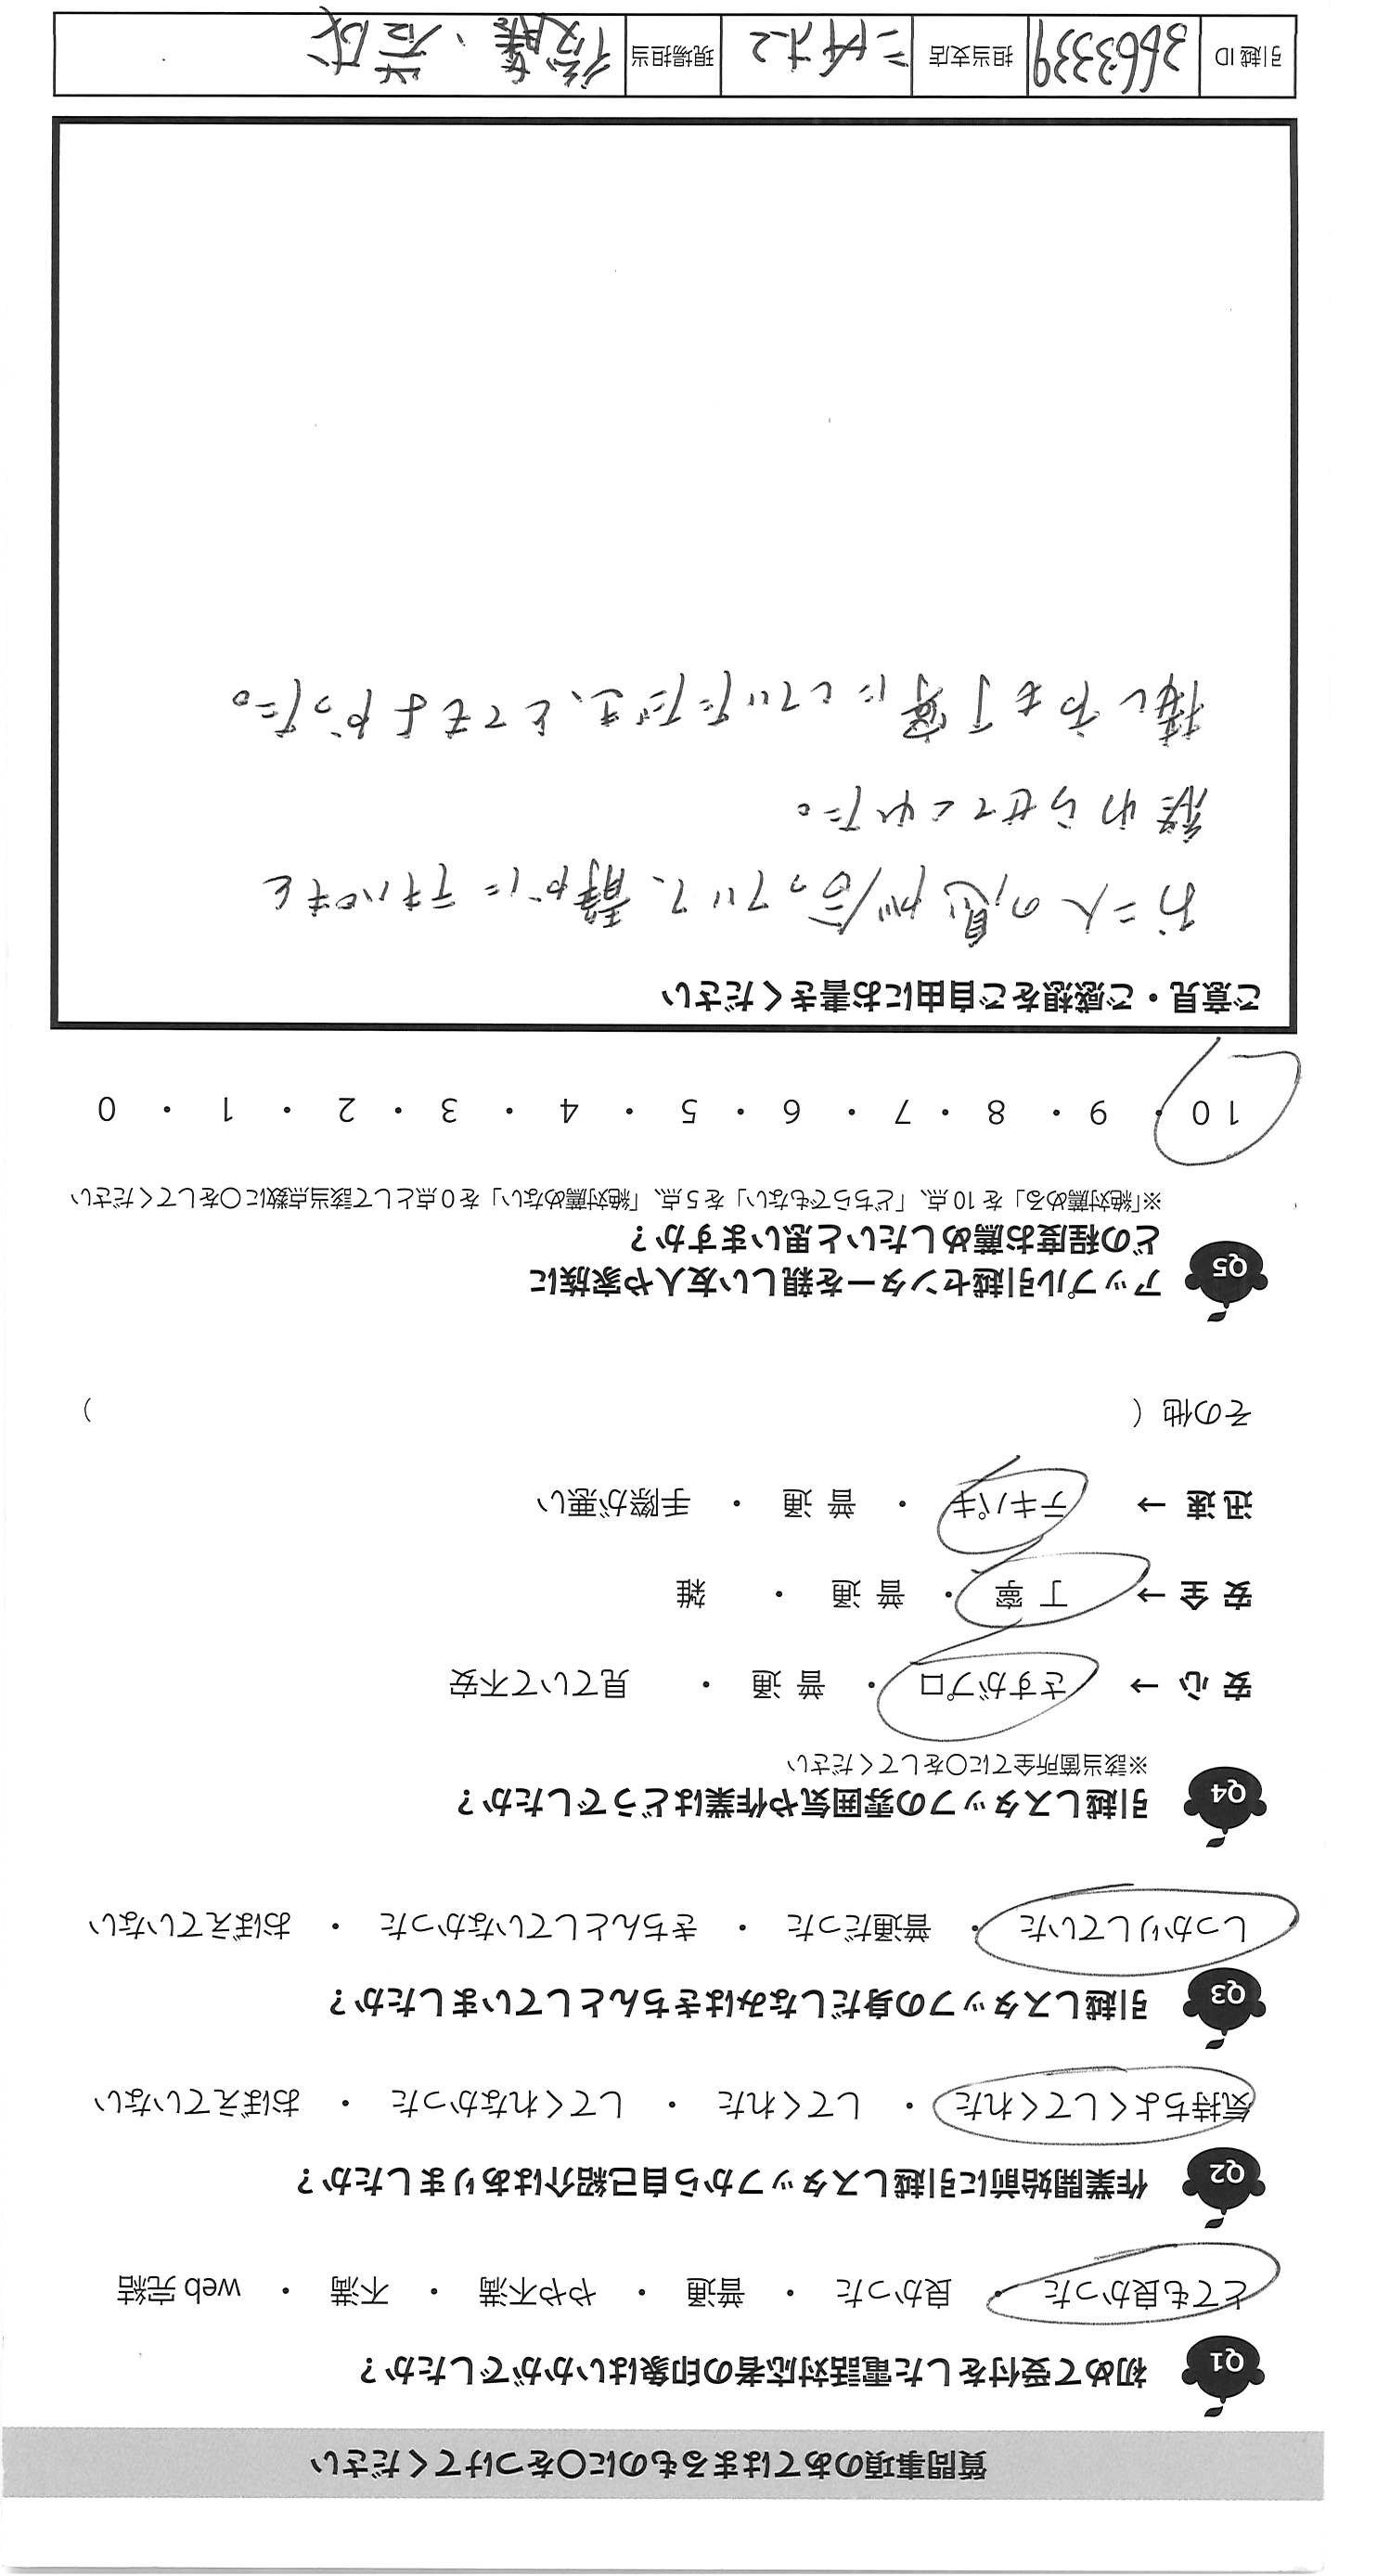 質問事項のあてはまるものに〇をつけてください
Q1 初めて受付をした電話対応者の印象はいかがでしたか？
とても良かった ・ 良かった ・ 普通 ・ やや不満 ・ 不満 ・ web 完結
Q2 作業開始前に引越しスタッフから自己紹介はありましたか？
気持ちよくしてくれた ・ してくれた ・ してくれなかった ・ おぼえていない
Q3 引越しスタッフの身だしなみはきちんとしていましたか？
しっかりしていた ・ 普通だった ・ きちんとしていなかった ・ おぼえていない
Q4 引越しスタッフの雰囲気や作業はどうでしたか？
※該当箇所全てに〇をしてください
安 心 → さすがプロ ・ 普 通 ・ 見ていて不安
安 全 → 丁 寧 ・ 普 通 ・ 雑
迅 速 → テキパキ ・ 普 通 ・ 手際が悪い
その他（ ）
Q5 アップル引越センターを親しい友人や家族に
どの程度お薦めしたいと思いますか？
※「絶対薦める」を 10 点、「どちらでもない」を 5 点、「絶対薦めない」を 0 点として該当点数に〇をしてください
10 ・ 9 ・ 8 ・ 7 ・ 6 ・ 5 ・ 4 ・ 3 ・ 2 ・ 1 ・ 0
ご意見・ご感想をご自由にお書きください
お二人の息が合っていて、静かにテキパキと
終わらせてくれた。
推し布も丁寧にしていただき、とてもよかった。
引越 ID 3663339 担当支店 現場担当 後藤、岩成